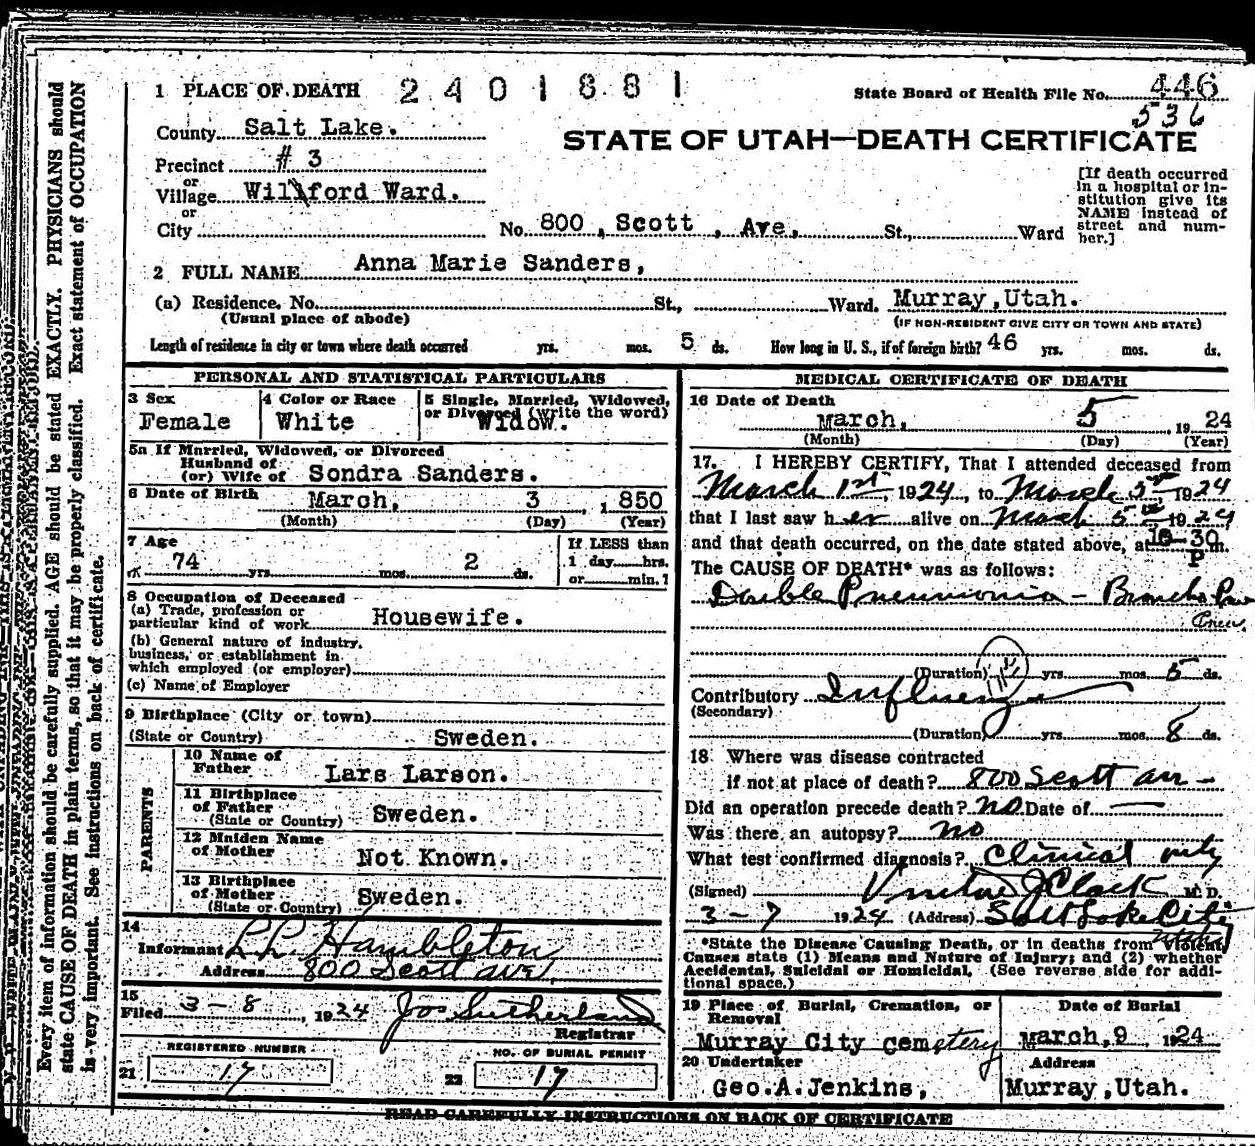 1 PLACE OF DEATH 2401881
State Board of Health File No. 446
536
County Salt Lake.
STATE OF UTAH—DEATH CERTIFICATE
Precinct # 3
or
Village Willford Ward.
or
City No. 800, Scott, Ave, St., Ward
[If death occurred
in a hospital or in-
stitution give its
NAME instead of
street and num-
ber.]
2 FULL NAME Anna Marie Sanders,
(a) Residence. No. St., Ward. Murray, Utah.
(Usual place of abode) (IF NON-RESIDENT GIVE CITY OR TOWN AND STATE)
Length of residence in city or town where death occurred yrs. mos. 5 ds. How long in U. S., if of foreign birth? 46 yrs. mos. ds.
PERSONAL AND STATISTICAL PARTICULARS
3 Sex
Female
4 Color or Race
White
5 Single, Married, Widowed,
or Divorced (write the word)
Widow.
5a If Married, Widowed, or Divorced
Husband of
(or) Wife of Sondra Sanders.
6 Date of Birth March, 3, 1850
(Month) (Day) (Year)
7 Age
74 yrs. mos. 2 ds.
If LESS than
1 day hrs.
or min.?
8 Occupation of Deceased
(a) Trade, profession or
particular kind of work Housewife.
(b) General nature of industry,
business, or establishment in
which employed (or employer)
(c) Name of Employer
9 Birthplace (City or town)
(State or Country) Sweden.
PARENTS
10 Name of
Father Lars Larson.
11 Birthplace
of Father
(State or Country) Sweden.
12 Maiden Name
of Mother Not Known.
13 Birthplace
of Mother
(State or Country) Sweden.
14
Informant L.L. Hambleton
Address 800 Scott ave
15
Filed 3-8, 1924 Jos Sutherland
Registrar
REGISTERED NUMBER
21 17
NO. OF BURIAL PERMIT
22 17
MEDICAL CERTIFICATE OF DEATH
16 Date of Death
March, 5, 1924
(Month) (Day) (Year)
17. I HEREBY CERTIFY, That I attended deceased from
March 1st, 1924, to March 5th 1924
that I last saw her alive on March 5th 1924
and that death occurred, on the date stated above, at 10-30 P m.
The CAUSE OF DEATH* was as follows:
Double Pneumonia - Broncho
(Duration) yrs. mos. 5 ds.
Contributory Influenza
(Secondary)
(Duration) yrs. mos. 8 ds.
18 Where was disease contracted
if not at place of death? 800 Scott av -
Did an operation precede death? no Date of —
Was there an autopsy? no
What test confirmed diagnosis? Clinical only
(Signed) J Clark M. D.
3-7 1924 (Address) Salt Lake City
Utah
*State the Disease Causing Death, or in deaths from Violent
Causes state (1) Means and Nature of Injury; and (2) whether
Accidental, Suicidal or Homicidal. (See reverse side for addi-
tional space.)
19 Place of Burial, Cremation, or
Removal
Murray City cemetery
Date of Burial
March, 9 1924
20 Undertaker
Geo. A. Jenkins,
Address
Murray, Utah.
READ CAREFULLY INSTRUCTIONS ON BACK OF CERTIFICATE
Every item of information should be carefully supplied. AGE should be stated EXACTLY. PHYSICIANS should
state CAUSE OF DEATH in plain terms, so that it may be properly classified. Exact statement of OCCUPATION
is very important. See instructions on back of certificate.